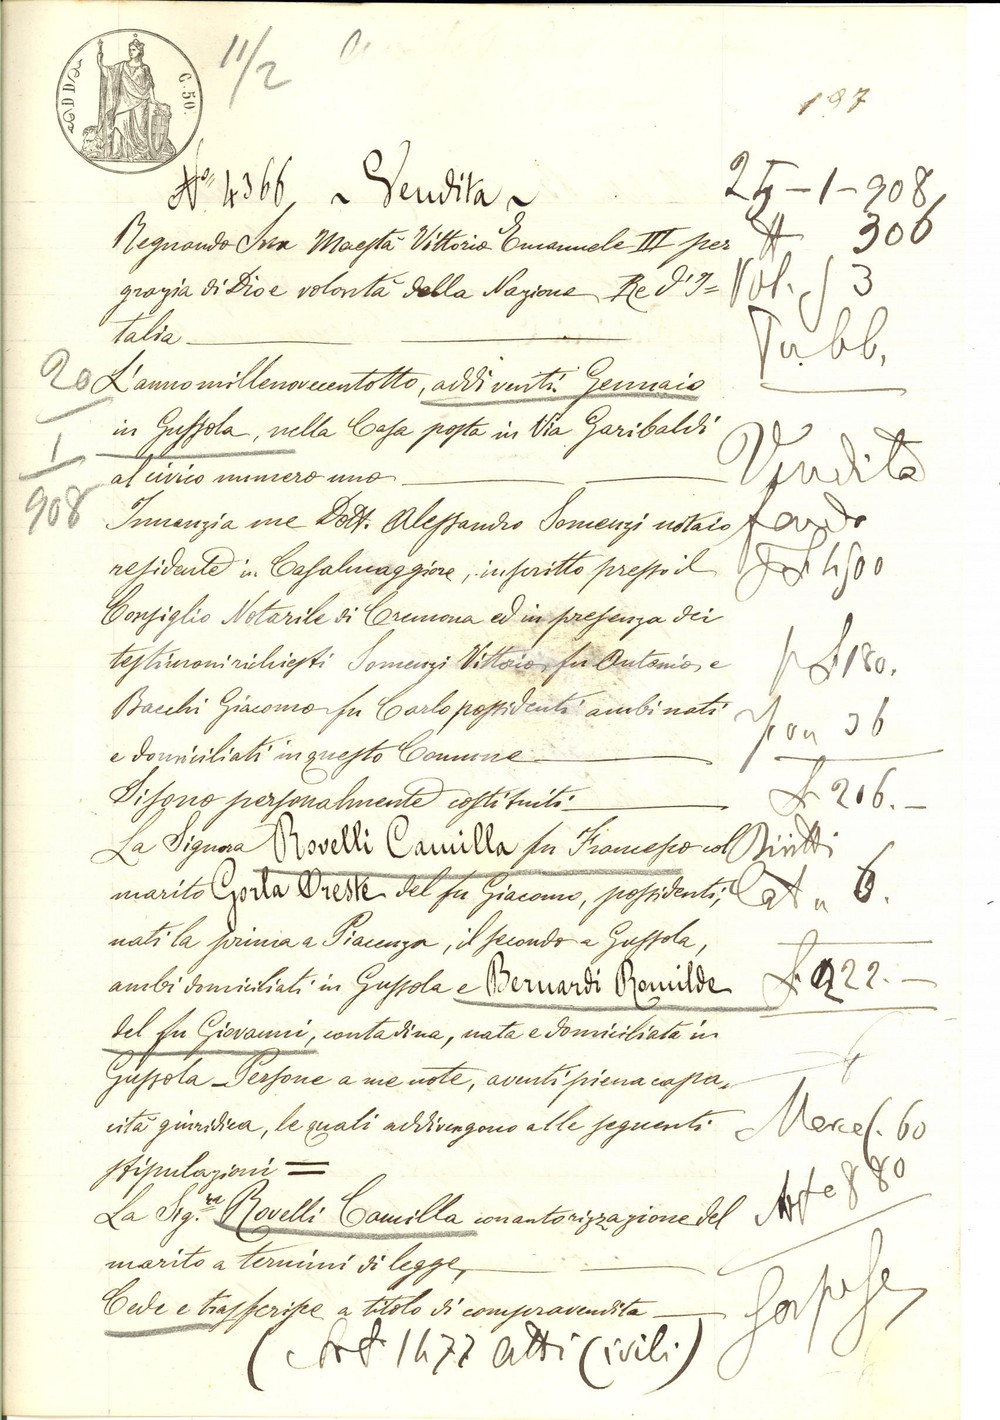 C. 50.
11/2
197
No. 4366 ~ Vendita ~
Regnando Sua Maestà Vittorio Emanuele III per
grazia di Dio e volontà della Nazione Re d'I=
talia
L'anno millenovecentotto, addi venti Gennaio
in Gussola, nella Casa posta in Via Garibaldi
al civico numero uno
Innanzi a me Dott. Alessandro Somenzi notaio
residente in Casalmaggiore, inscritto presso il
Consiglio Notarile di Cremona ed in presenza dei
testimoni richiesti Somenzi Vittorio fu Antonio e
Bacchi Giacomo fu Carlo possidenti ambi nati
e domiciliati in questo Comune
Si sono personalmente costituiti
La Signora Rovelli Camilla fu Francesco col
marito Gorla Oreste del fu Giacomo, possidenti,
nati la prima a Piacenza, il secondo a Gussola,
ambi domiciliati in Gussola e Bernardi Romilde
del fu Giovanni, contadina, nata e domiciliata in
Gussola - Persone a me note, aventi piena capa-
cità giuridica, le quali addivengono alle seguenti
stipulazioni =
La Sig.ra Rovelli Camilla con autorizzazione del
marito a termini di legge,
Cede e trasferisce a titolo di compravendita
(Art 1477 Atti Civili)
20
1
908
25-1-908
# 306
Vol. 53
Pubb.
Vendita
fondo
£ 4500
p £ 180.
36
£ 216.-
Diritti
Cat n 6.
£ 222.-
Merces. 60
Art e 880